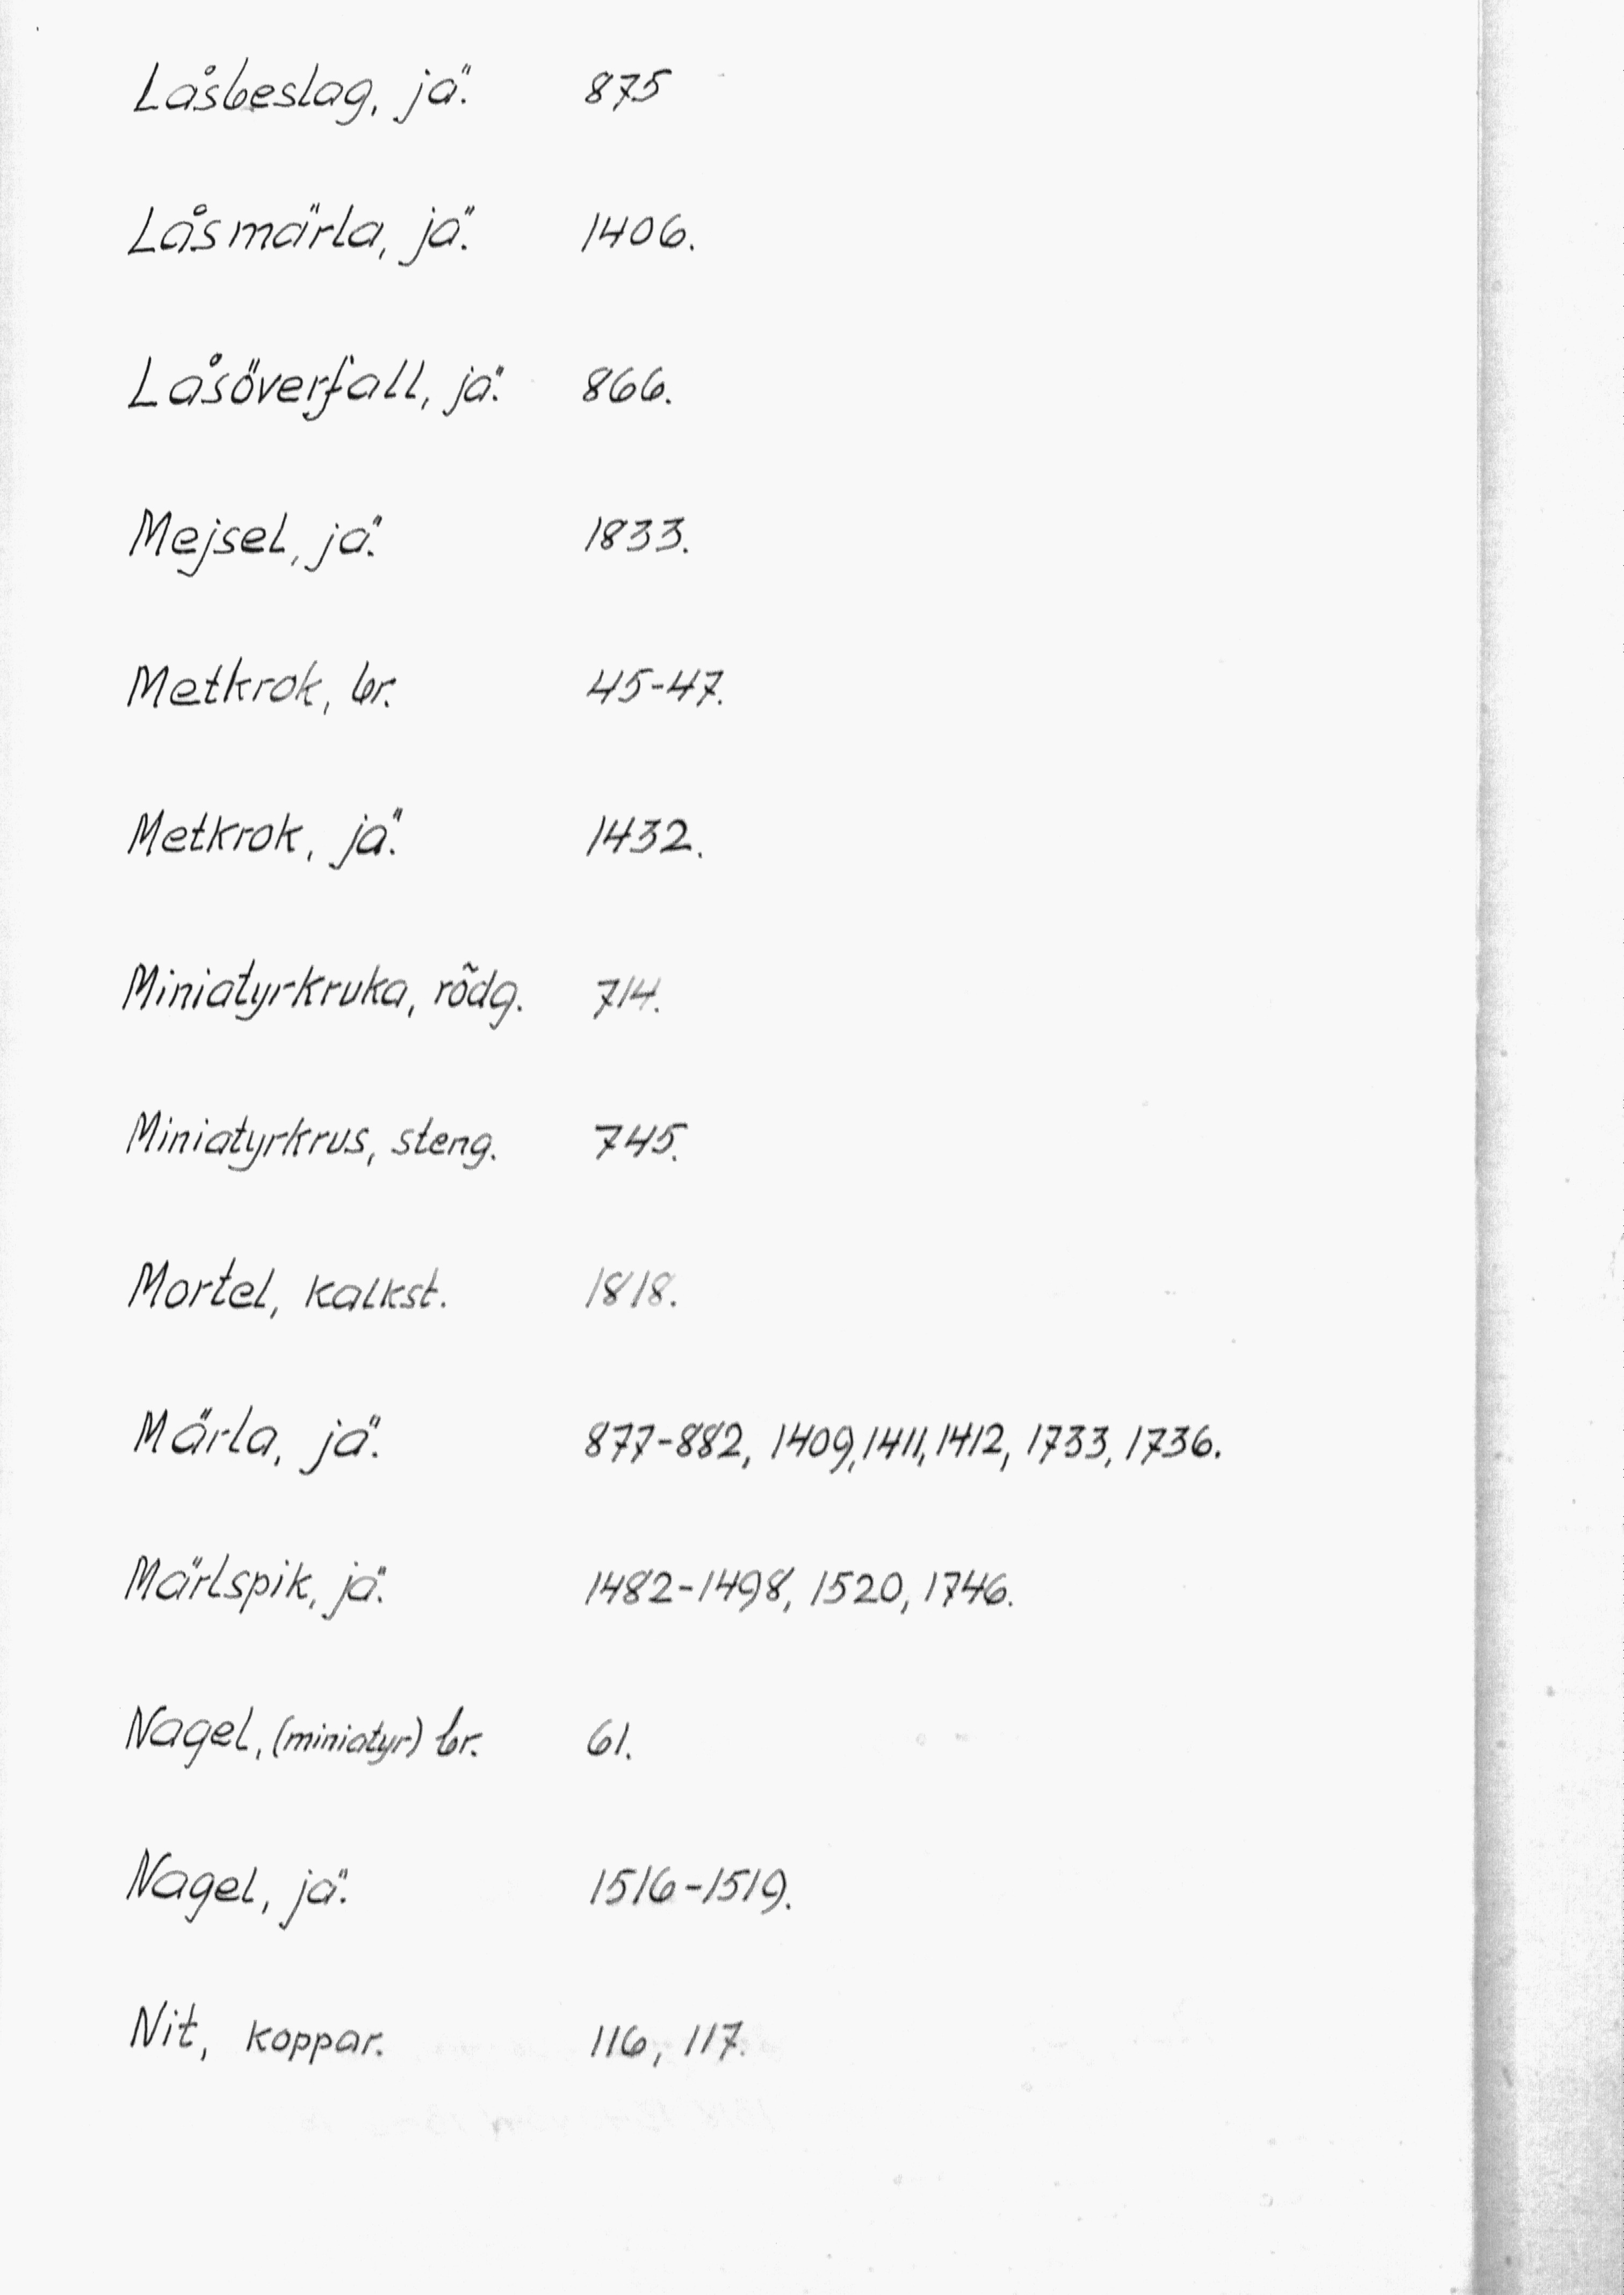 Låsbeslag, jä. 875
Låsmärla, jä. 1406.
Låsöverfall, jä. 866.
Mejsel, jä. 1833.
Metkrok, br. 45-47.
Metkrok, jä. 1432.
Miniatyrkruka, rödg. 714.
Miniatyrkrus, steng. 745.
Mortel, kalkst. 1818.
Märla, jä. 877-882, 1409, 1411, 1412, 1733, 1736.
Märlspik, jä. 1482-1498, 1520, 1746.
Nagel, (miniatyr) br. 61.
Nagel, jä. 1516-1519.
Nit, koppar. 116, 117.